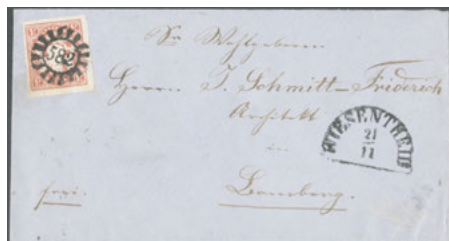 582
Sr Wohlgeboren
Herrn J. Schmitt-Friderich
Architekt
in
WIESENTHEID
21
11
frei.
Bamberg.